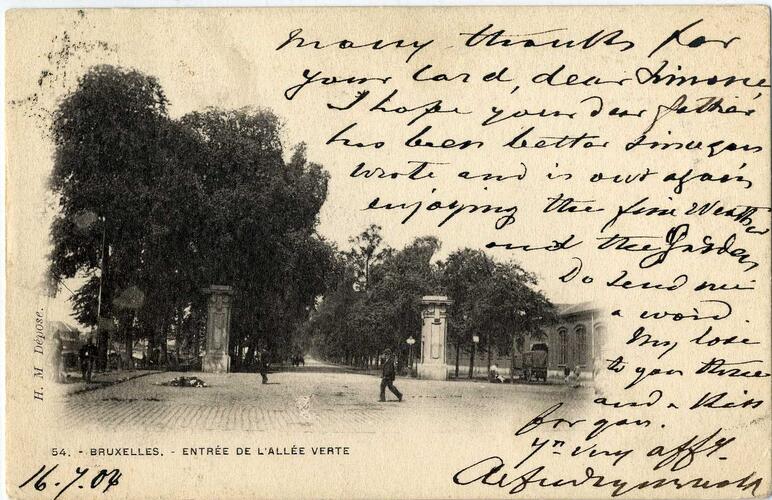 Many thanks for
your card, dear Simone
I hope your dear father
has been better since you
wrote and is out again
enjoying the fine Weather
and the Garden
Do send me
a word.
My love
to you three
and a Kiss
for you.
yrs very affly.
H. M. Dépose.
54. - BRUXELLES. - ENTRÉE DE L'ALLÉE VERTE
16.7.04